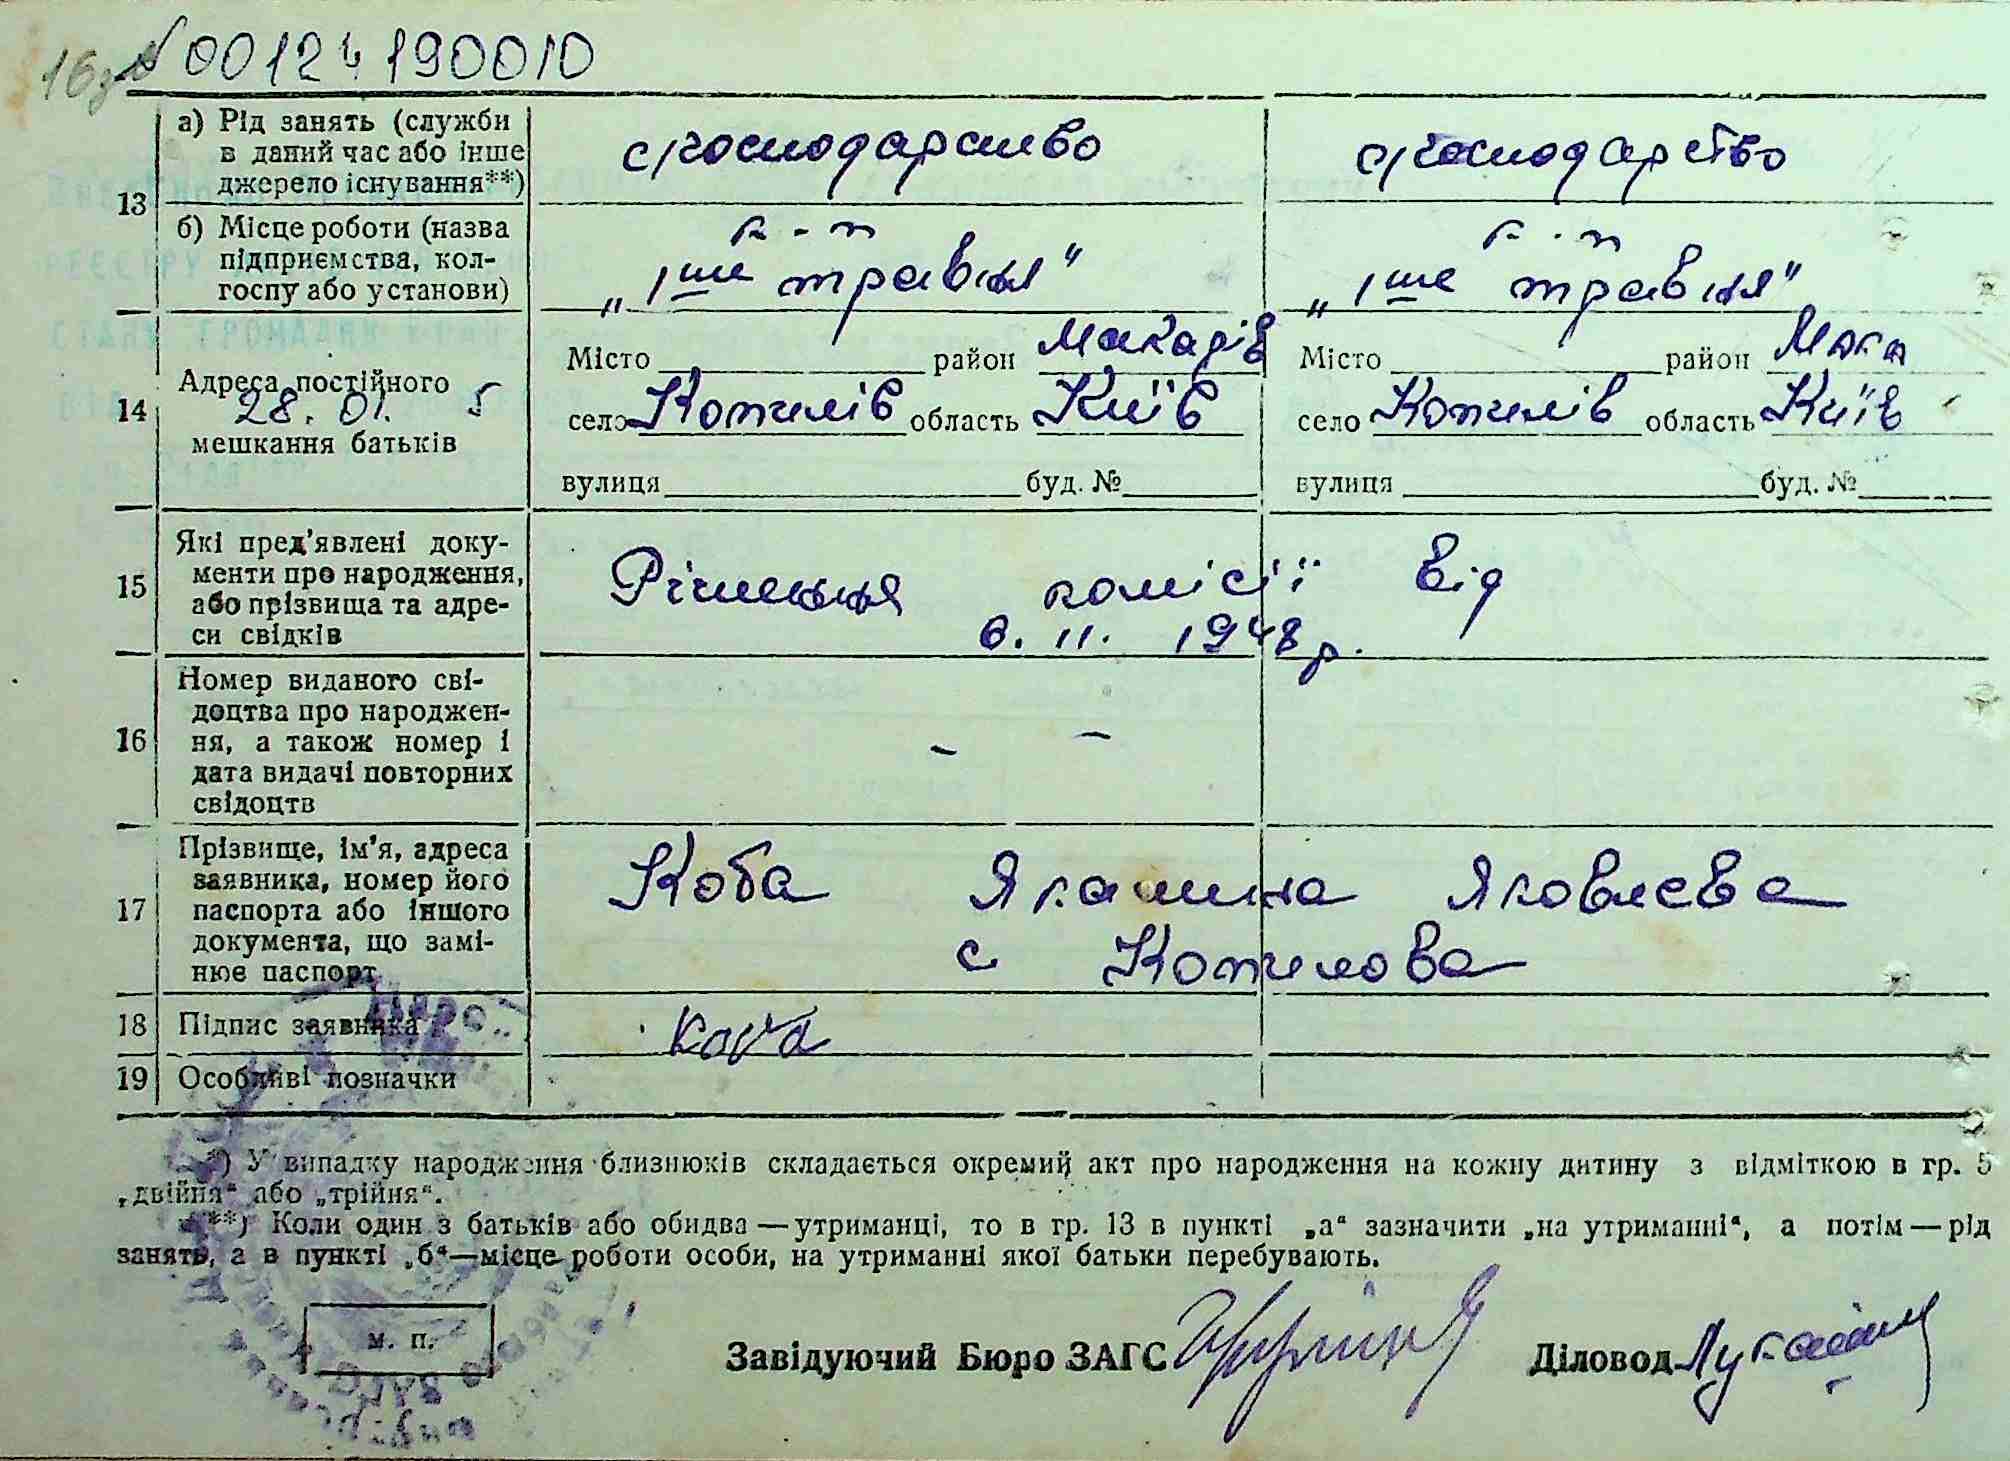 00124190010
а) Рід занять (служби в даний час або інше джерело існування**)
с/господарство
с/господарство
13
б) Місце роботи (назва підприємства, колгоспу або установи)
к-п
„1ше травня"
к-п
„1ше травня"
14
Адреса постійного
28. 01. 5
мешкання батьків
Місто район Макарів
село Копилів область Київ
вулиця буд. №
Місто район Мака
село Копилів область Київ
вулиця буд. №
15
Які пред'явлені документи про народження, або прізвища та адреси свідків
Рішення комісії від
6. 11. 1948 р.
16
Номер виданого свідоцтва про народження, а також номер і дата видачі повторних свідоцтв
– –
17
Прізвище, ім'я, адреса заявника, номер його паспорта або іншого документа, що замінює паспорт
Коба Яковлєва
с Копилова
18 Підпис заявника
19 Особливі позначки
*) У випадку народження близнюків складається окремий акт про народження на кожну дитину з відміткою в гр. 5
„двійня“ або „трійня“.
**) Коли один з батьків або обидва — утриманці, то в гр. 13 в пункті „а“ зазначити „на утриманні“, а потім — рід
занять, а в пункті „б“—місце роботи особи, на утриманні якої батьки перебувають.
м. п.
Завідуючий Бюро ЗАГС
Діловод